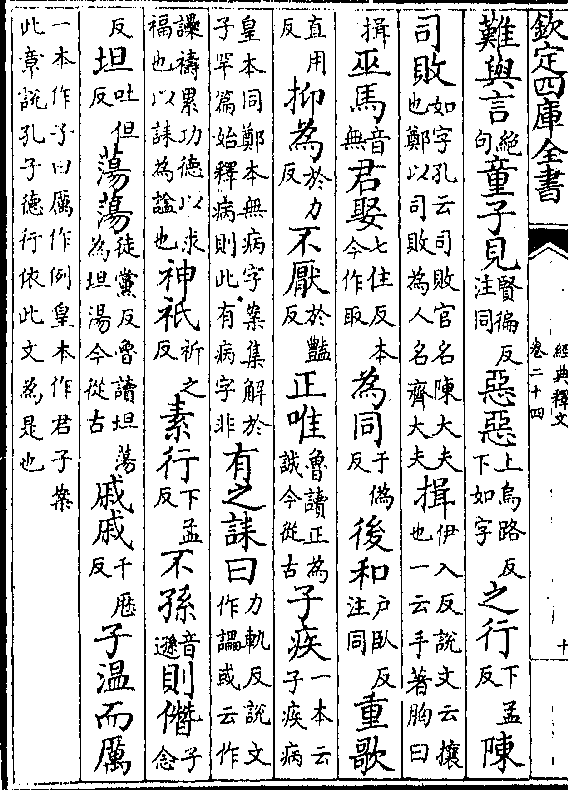 欽定四庫全書
經典釋文
卷二十四
十
難與言絕句童子見賢徧反注同惡惡上烏路反下如字之行下孟反陳
司敗如字孔云司敗官名陳大夫也鄭以司敗為人名齊大夫揖伊入反說文云攘也一云手著胸曰
揖巫馬音無君娶七住反本今作取為同于僞反後和戶臥反注同重歌
直用反抑為於力反不厭於豔反正唯魯讀正為誠今從古子疾一本云子疾病
皇本同鄭本無病字案集解於子罕篇始釋病則此有病字非有之誄曰力軌反說文作讄或云作
讄禱累功德以求福也以誄為諡也神祇祈之反素行下孟反不孫音遜則僭子念
反坦吐但反蕩蕩徒黨反魯讀坦蕩為坦湯今從古戚戚千厯反子溫而厲
一本作子曰厲作例皇本作君子案此章說孔子德行依此文為是也